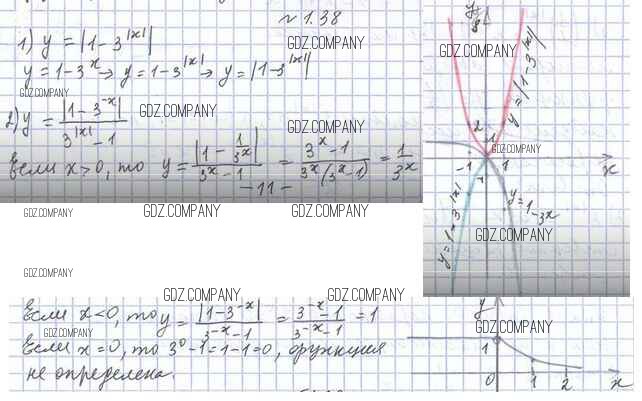 № 1.38
1) y = |1-3^|x||
y = 1-3^x → y = 1-3^|x| → y = |1-3^|x||
2) y = |1-3^-x| / 3^|x| - 1
Если x > 0, то y = |1 - 1/3^x| / 3^x - 1 = 3^x - 1 / 3^x(3^x-1) = 1/3^x
- 11 -
Если x<0, то y = |1-3^-x| / 3^-x - 1 = 3^-x - 1 / 3^-x - 1 = 1
Если x = 0, то 3^0 - 1 = 1 - 1 = 0, функция
не определена.
y
8
y = |1-3^|x||
2
1
-1
1
x
y = 1-3^|x|
y = 1-3^x
y
1
0
1
2
x
GDZ.COMPANY
GDZ.COMPANY
GDZ.COMPANY
GDZ.COMPANY
GDZ.COMPANY
GDZ.COMPANY
GDZ.COMPANY
GDZ.COMPANY
GDZ.COMPANY
GDZ.COMPANY
GDZ.COMPANY
GDZ.COMPANY
GDZ.COMPANY
GDZ.COMPANY
GDZ.COMPANY
GDZ.COMPANY